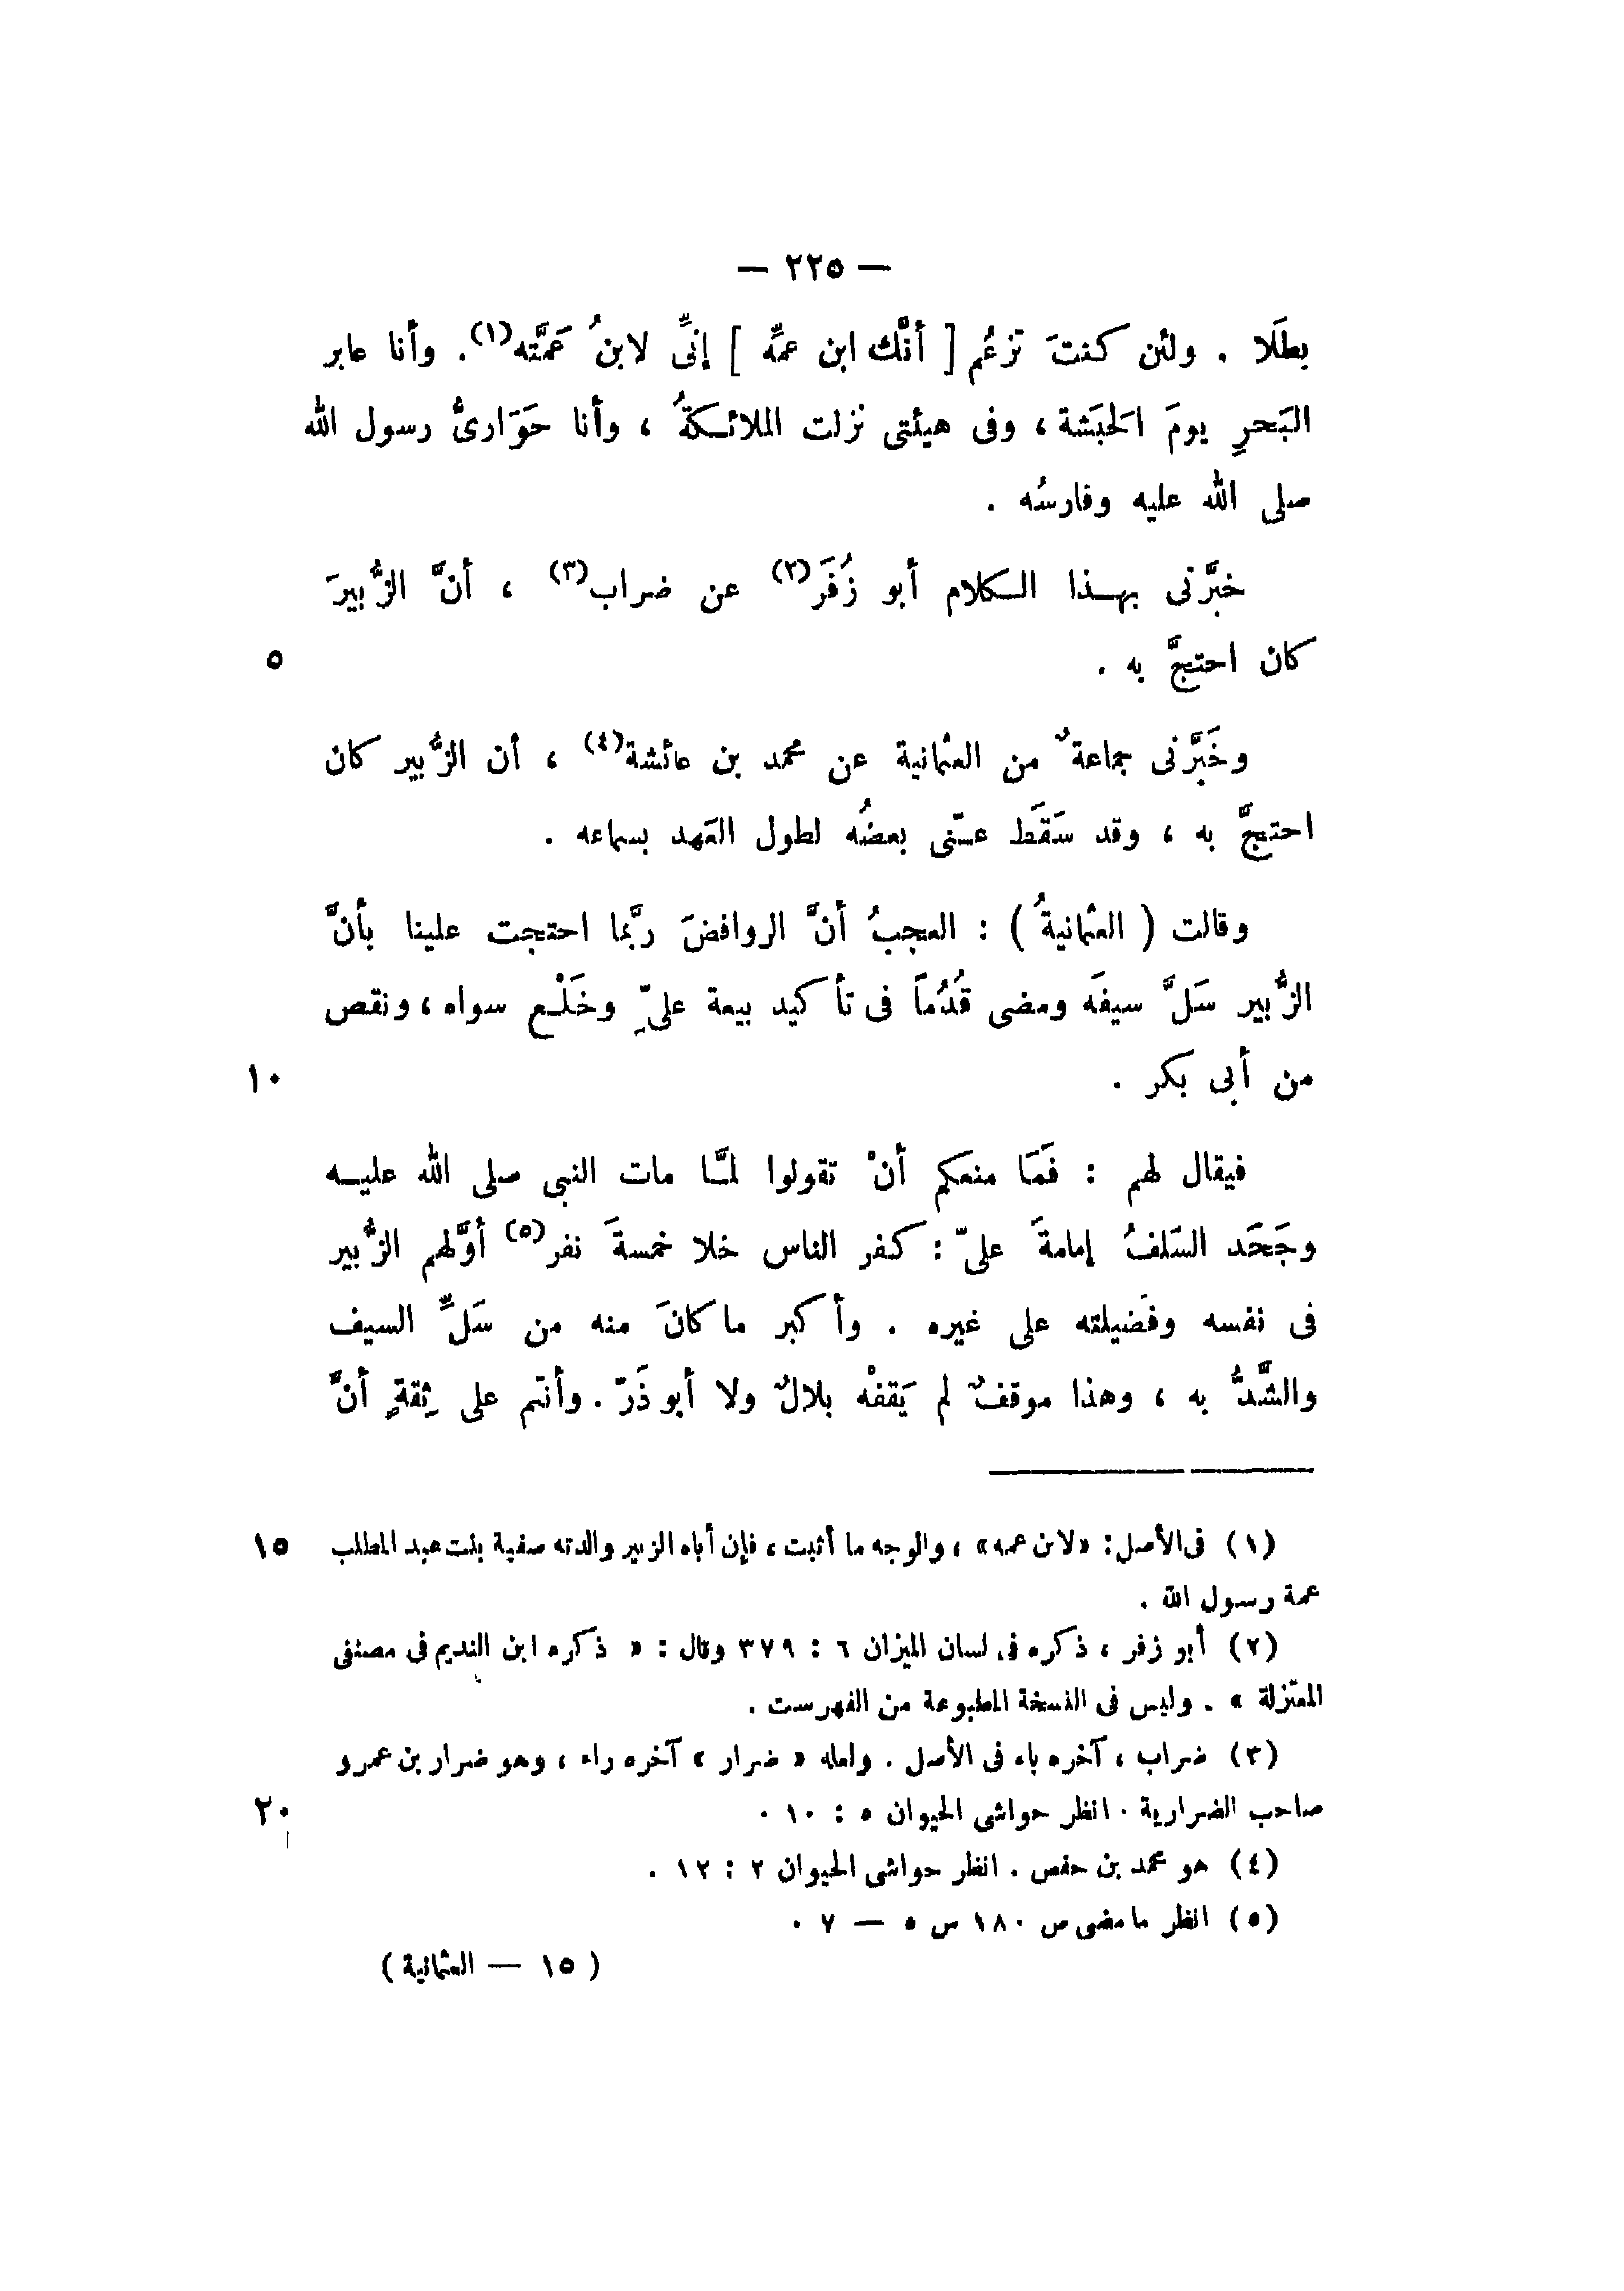 — ٢٢٥ —
بطَلا . ولئن كنتَ تزعُم [ أنَّك ابن عمِّه ] إنىِّ لابنُ عَمَّته(١). وأنا عابر
البَحرِ يومَ الحَبَشة ، وفى هيئتى نزلت الملائكةُ ، وأنا حَوَارىُّ رسول الله
صلى الله عليه وفارسُه .
خبَّرنى بهذا الكلام أبو زُفَرَ(٢) عن ضراب(٣) ، أنَّ الزُّبيرَ
كان احتجَّ به . ٥
وخَبَّرنى جماعةٌ من العثمانية عن محمد بن عائشة(٤) ، أن الزُّبير كان
احتجَّ به ، وقد سَقَط عنّى بعضُه لطول العَهد بسماعه .
وقالت ( العثمانيةُ ) : العجبُ أنَّ الروافضَ ربَّما احتجت علينا بأنَّ
الزُّبير سَلَّ سيفَه ومضى قُدُماً فى تأكيد بيعة علىِّ وخَلْع سواه ، ونقص
من أبى بكر . ١٠
فيقال لهم : فَمَا منعكم أنْ تقولوا لمَّا مات النبى صلى الله عليه
وجَحَد السَّلفُ إمامةَ علىّ : كفر الناس خلا خمسةَ نفر(٥) أوَّلهم الزُّبير
فى نفسه وفضيلته على غيره . وأكبر ما كانَ منه من سَلِّ السيف
والشَّدُّ به ، وهذا موقفٌ لم يَقفْه بلالٌ ولا أبو ذَرّ . وأنتم على ثِقةٍ أنَّ
(١) فى الأصل : «لابن عمه» ، والوجه ما أثبت ، فإن أباه الزبير والدته صفية بنت عبد المطلب ١٥
عمة رسول الله .
(٢) أبو زفر ، ذكره فى لسان الميزان ٦ : ٣٧٩ وقال : « ذكره ابن النديم فى مصنفى
المعتزلة » . وليس فى النسخة المطبوعة من الفهرست .
(٣) ضراب ، آخره باء فى الأصل . ولعله « ضرار » آخره راء ، وهو ضرار بن عمرو
صاحب الضرارية . انظر حواشى الحيوان ٥ : ١٠ . ٢٠
(٤) هو محمد بن حفص . انظر حواشى الحيوان ٢ : ١٢ .
(٥) انظر ما مضى ص ١٨٠ س ٥ — ٧ .
( ١٥ — العثمانية )